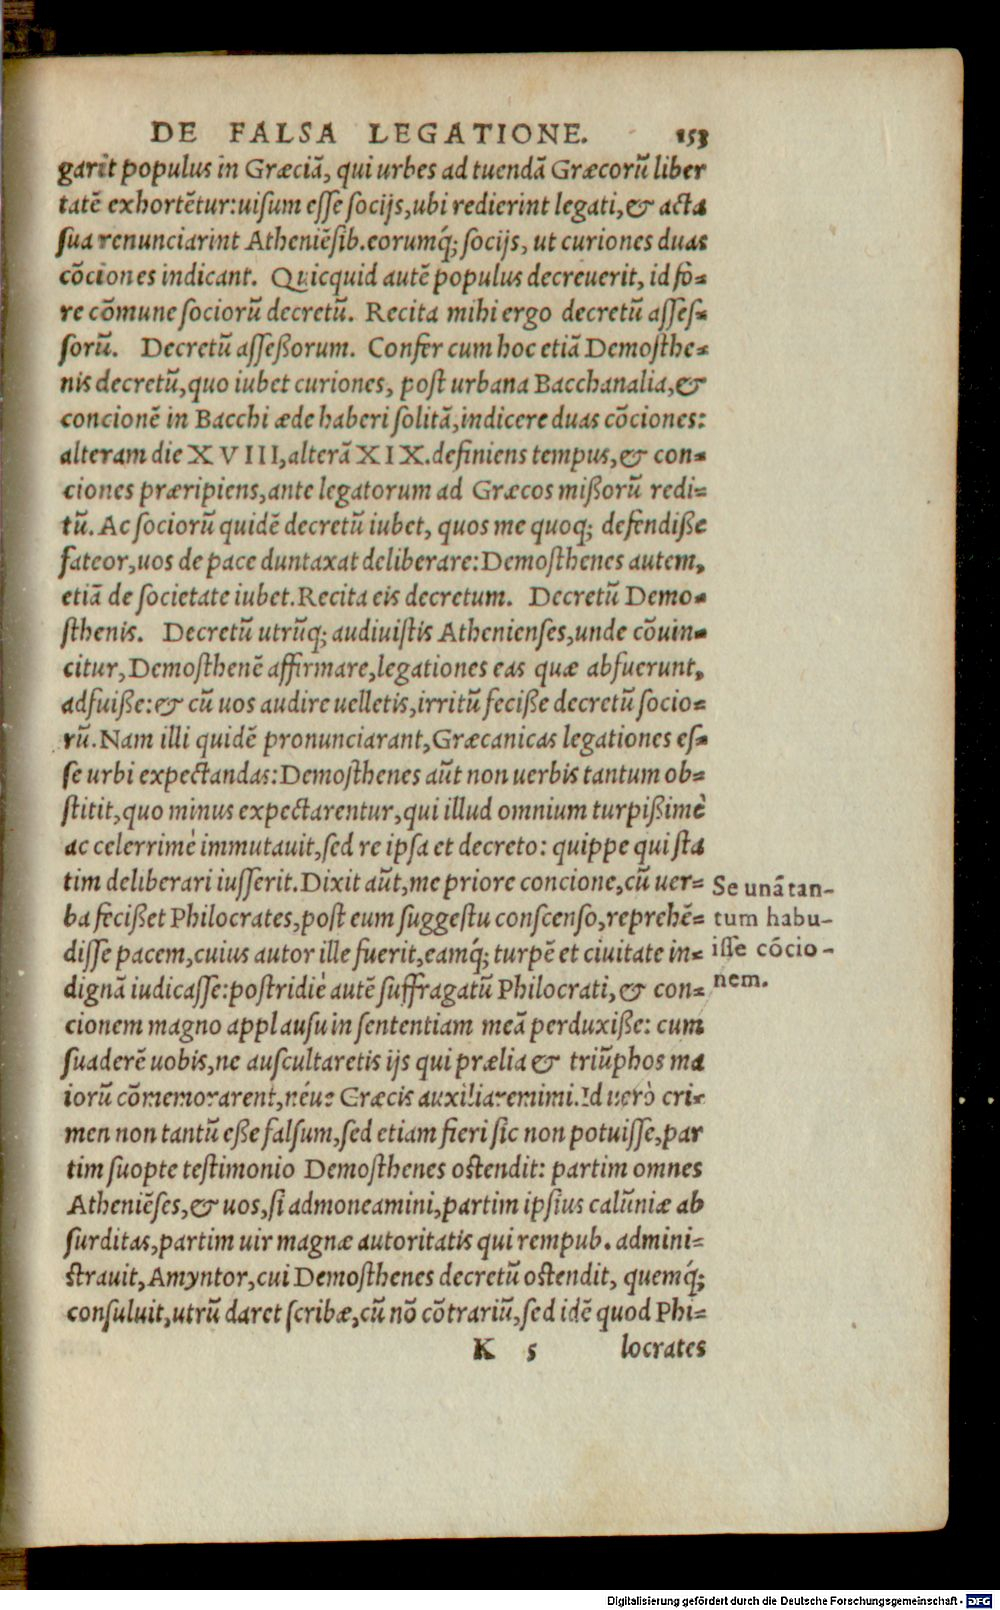 DE FALSA LEGATIONE. 153
garit populus in Græciã, qui urbes ad tuendã Græcorũ liber
tatẽ exhortẽtur: uisum esse socijs, ubi redierint legati, & acta
sua renunciarint Atheniẽsib. eorumq́; socijs, ut curiones duas
cõciones indicant. Quicquid autẽ populus decreuerit, id fo-
re cõmune sociorũ decretũ. Recita mihi ergo decretũ asses-
sorũ. Decretũ assessorum. Confer cum hoc etiã Demosthe-
nis decretũ, quo iubet curiones, post urbana Bacchanalia, &
concionẽ in Bacchi æde haberi solitã, indicere duas cõciones:
alteram die XVIII, alterã XIX. definiens tempus, & con-
ciones præripiens, ante legatorum ad Græcos missorũ redi-
tũ. Ac sociorũ quidẽ decretũ iubet, quos me quoq; defendisse
fateor, uos de pace duntaxat deliberare: Demosthenes autem,
etiã de societate iubet. Recita eis decretum. Decretũ Demo-
sthenis. Decretũ utrũq; audiuistis Athenienses, unde cõuin-
citur, Demosthenẽ affirmare, legationes eas quæ abfuerunt,
adfuisse: & cũ uos audire uelletis, irritũ fecisse decretũ socio-
rũ. Nam illi quidẽ pronunciarant, Græcanicas legationes es-
se urbi expectandas: Demosthenes aũt non uerbis tantum ob-
stitit, quo minus expectarentur, qui illud omnium turpissimè
ac celerrimè immutauit, sed re ipsa et decreto: quippe qui sta
tim deliberari iusserit. Dixit aũt, me priore concione, cũ uer-
ba fecisset Philocrates, post eum suggestu conscenso, reprehẽ-
disse pacem, cuius autor ille fuerit, eamq́; turpẽ et ciuitate in-
dignã iudicasse: postridiè autẽ suffragatũ Philocrati, & con-
cionem magno applausu in sententiam meã perduxisse: cum
suaderẽ uobis, ne auscultaretis ijs qui prælia & triũphos ma
iorũ cõmemorarent, néue Græcis auxiliaremini. Id uerò cri-
men non tantũ esse falsum, sed etiam fieri sic non potuisse, par
tim suopte testimonio Demosthenes ostendit: partim omnes
Atheniẽses, & uos, si admoneamini, partim ipsius calũniæ ab
surditas, partim uir magnæ autoritatis qui rempub. admini-
strauit, Amyntor, cui Demosthenes decretũ ostendit, quemq́;
consuluit, utrũ daret scribæ, cũ nõ cõtrariũ, sed idẽ quod Phi-
K 5 locrates
Se unã tan-
tum habu-
isse cõcio-
nem.
Digitalisierung gefördert durch die Deutsche Forschungsgemeinschaft - DFG